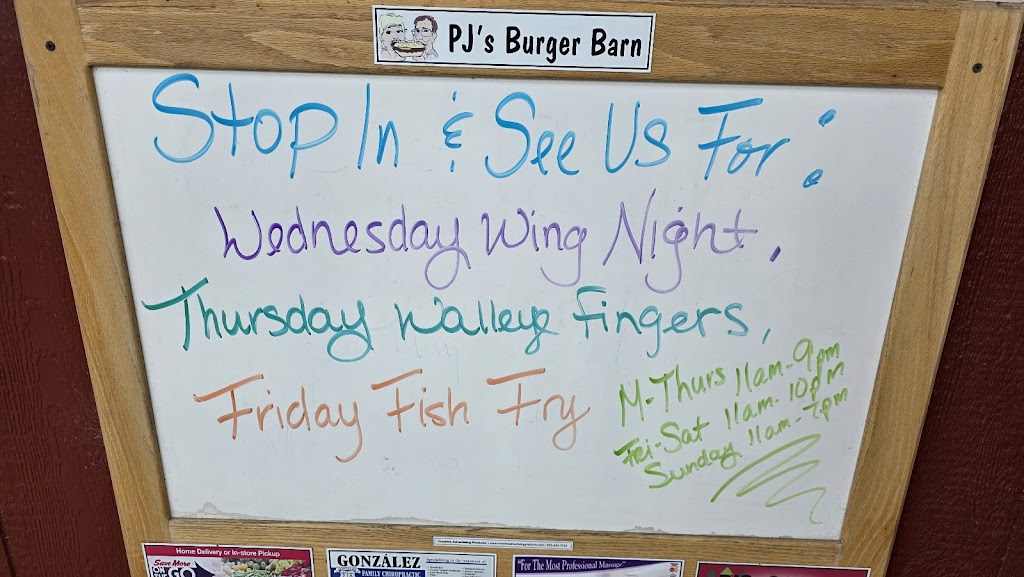 PJ's Burger Barn
Stop In & See Us For:
Wednesday Wing Night,
Thursday Walleye Fingers,
Friday Fish Fry
M-Thurs 11am-9pm
Fri-Sat 11am-10pm
Sunday 11am-7pm
Home Delivery or In-store Pickup
Save More
ON THE GO
GONZÁLEZ
FAMILY CHIROPRACTIC
"For The Most Professional Massage"